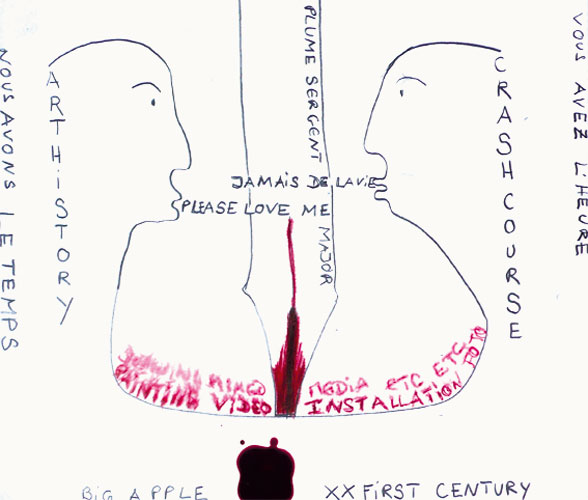 NOUS AVONS LE TEMPS
ART HiSTORY
PLUME SERGENT MAJOR
CRASH COURSE
VOUS AVEZ L'HEURE
JAMAiS DE LA ViE
PLEASE LOVE ME
MIXED MEDIA ETC ETC
PAINTING VIDEO INSTALLATION FOTO
BiG APPLE
XXFiRST CENTURY